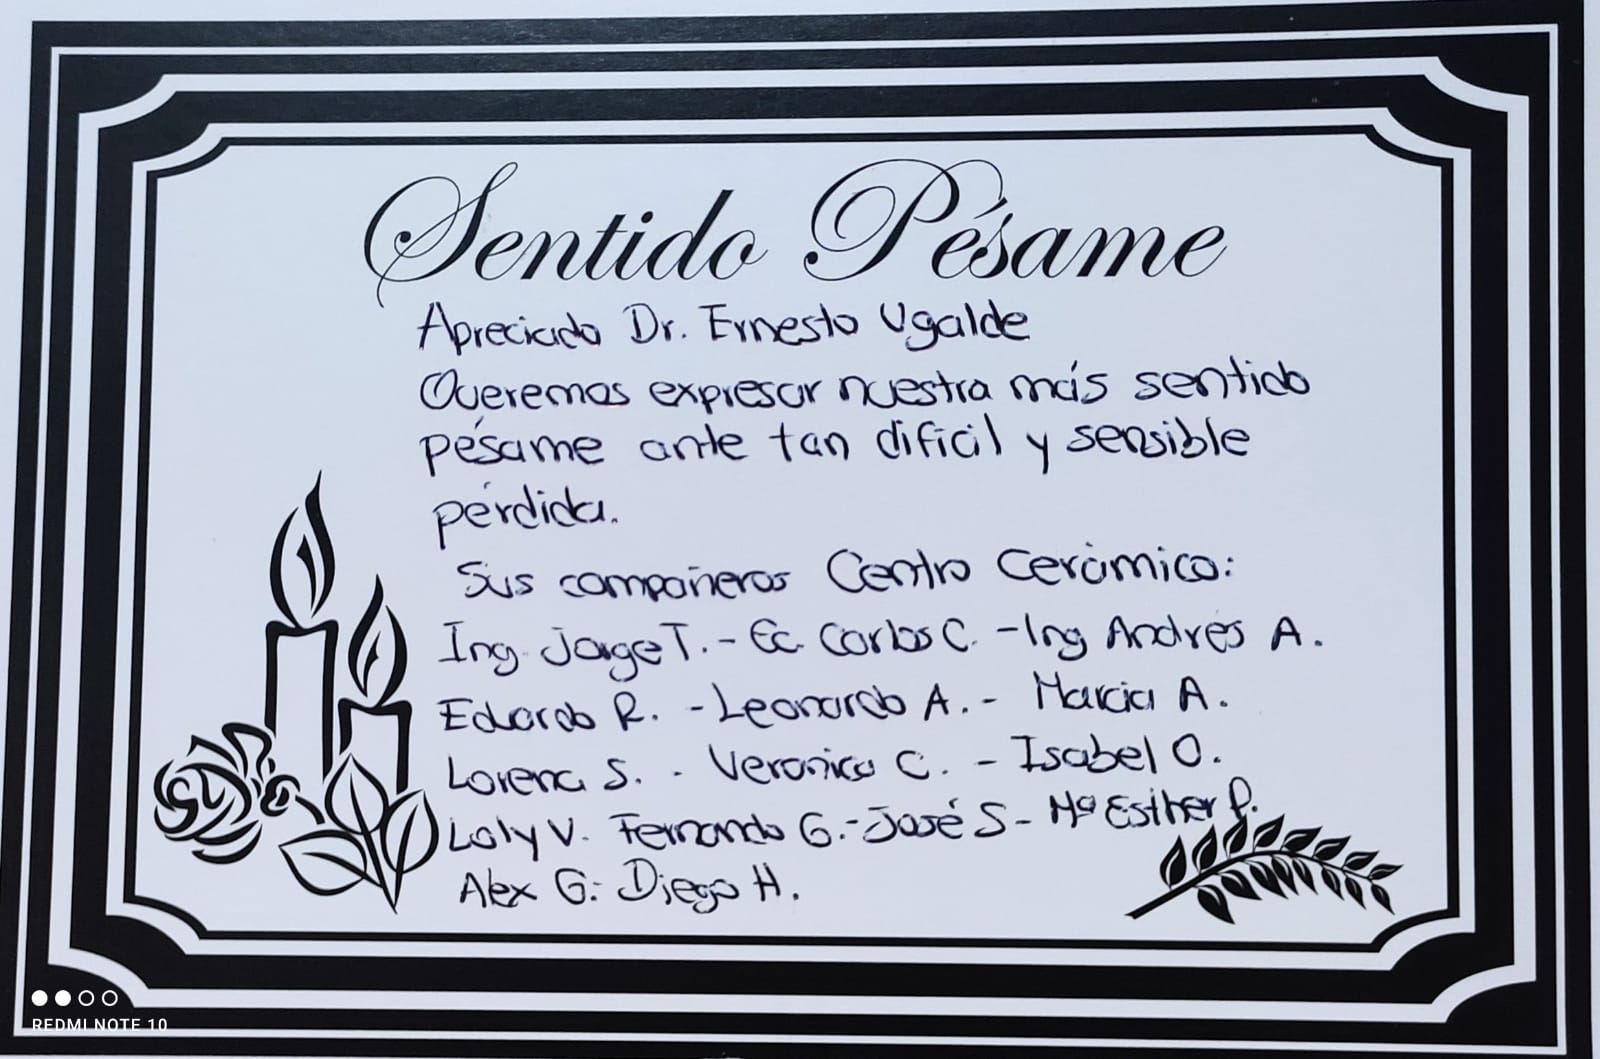 Sentido Pésame
Apreciado Dr. Ernesto Ugalde
Queremos expresar nuestra más sentido
pésame ante tan dificil y sensible
pérdida.
Sus compañeros Centro Cerámico:
Ing. Jorge T. - Ec. Carlos C. - Ing Andrés A.
Eduardo R. - Leonardo A. - Marcia A.
Lorena S. - Veronica C. - Isabel O.
Loly V. Fernando G. - José S - Mª Esther P.
Alex G. - Diego H.
REDMI NOTE 10